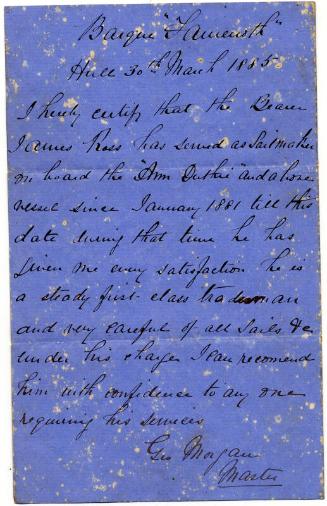 Barque "Tameroth"
Hull 30th March 1885
I hereby certify that the Bearer
James Ross has served as Sailmaker
on board the "Ann Duthie" and above
vessel since January 1881 till this
date during that time he has
given me every satisfaction he is
a steady first class tradesman
and very careful of all Sails &c
under his charge I can recomend
him with confidence to any one
requiring his services
Geo Morgan
Master